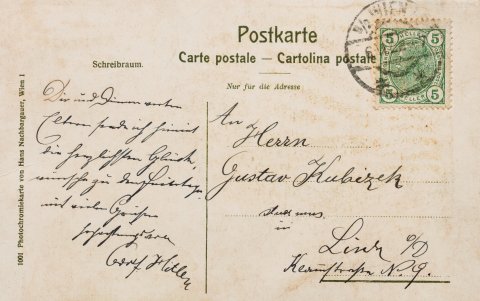 Postkarte
Carte postale — Cartolina postale
Schreibraum.
Nur für die Adresse
1001 Photochromiekarte von Hans Nachbargauer, Wien I
WIEN
5 5
HELLER
Dir und Deinen werten
Eltern sende ich hiermit
die herzlichsten Glück
wünsche zu den Feiertagen
mit vielen Grüßen
hochachtungsvoll
Adolf Hitler
An
Herrn
Gustav Kubizek
in
Linz a/D
N. 9.